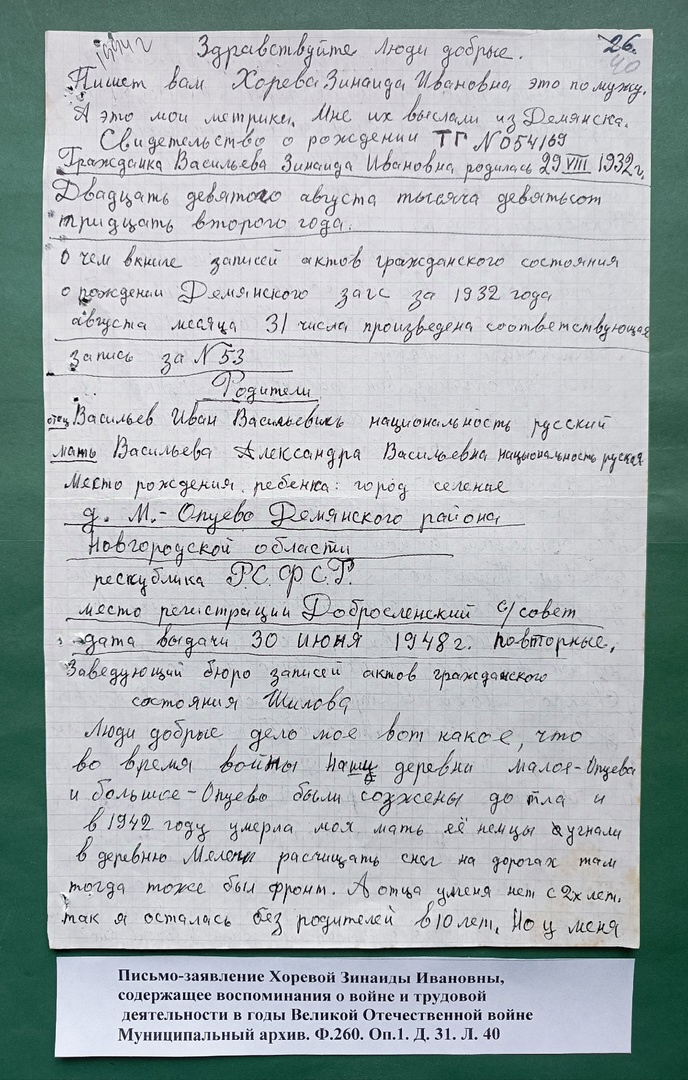 1994 г
26.
40
Здравствуйте люди добрые.
Пишет вам Хорева Зинаида Ивановна это по мужу.
А это мои метрики. Мне их выслали из Демянска.
Свидетельство о рождении ТГ N 054169
Гражданка Васильева Зинаида Ивановна родилась 29 VIII 1932 г.
Двадцать девятого августа тысяча девятьсот
тридцать второго года.
о чем вкниге записей актов гражданского состояния
о рождении Демянского загс за 1932 года
августа месяца 31 числа произведена соответствующая
запись за N 53
Родители
отец Васильев Иван Васильевичь национальность русский
мать Васильева Александра Васильевна национальность руская
место рождения ребенка: город селение
д. М.-Опуево Демянского района
Новгородской области
республика Р.С.Ф.С.Р.
место регистрации Добросленский с/совет
дата выдачи 30 июня 1948 г. повторные.
Заведующий бюро записей актов гражданского
состояния Шилова
Люди добрые дело мое вот какое, что
во время войны наши деревни малое-Опуева
и большое-Опуево были созжены до тла и
в 1942 году умерла моя мать её немцы угнали
в деревню Мелеча расчищать снег на дорогах там
тогда тоже был фронт. А отца уменя нет с 2х лет.
так я осталась без родителей в 10 лет. Но у меня
Письмо-заявление Хоревой Зинаиды Ивановны,
содержащее воспоминания о войне и трудовой
деятельности в годы Великой Отечественной войне
Муниципальный архив. Ф.260. Оп.1. Д. 31. Л. 40